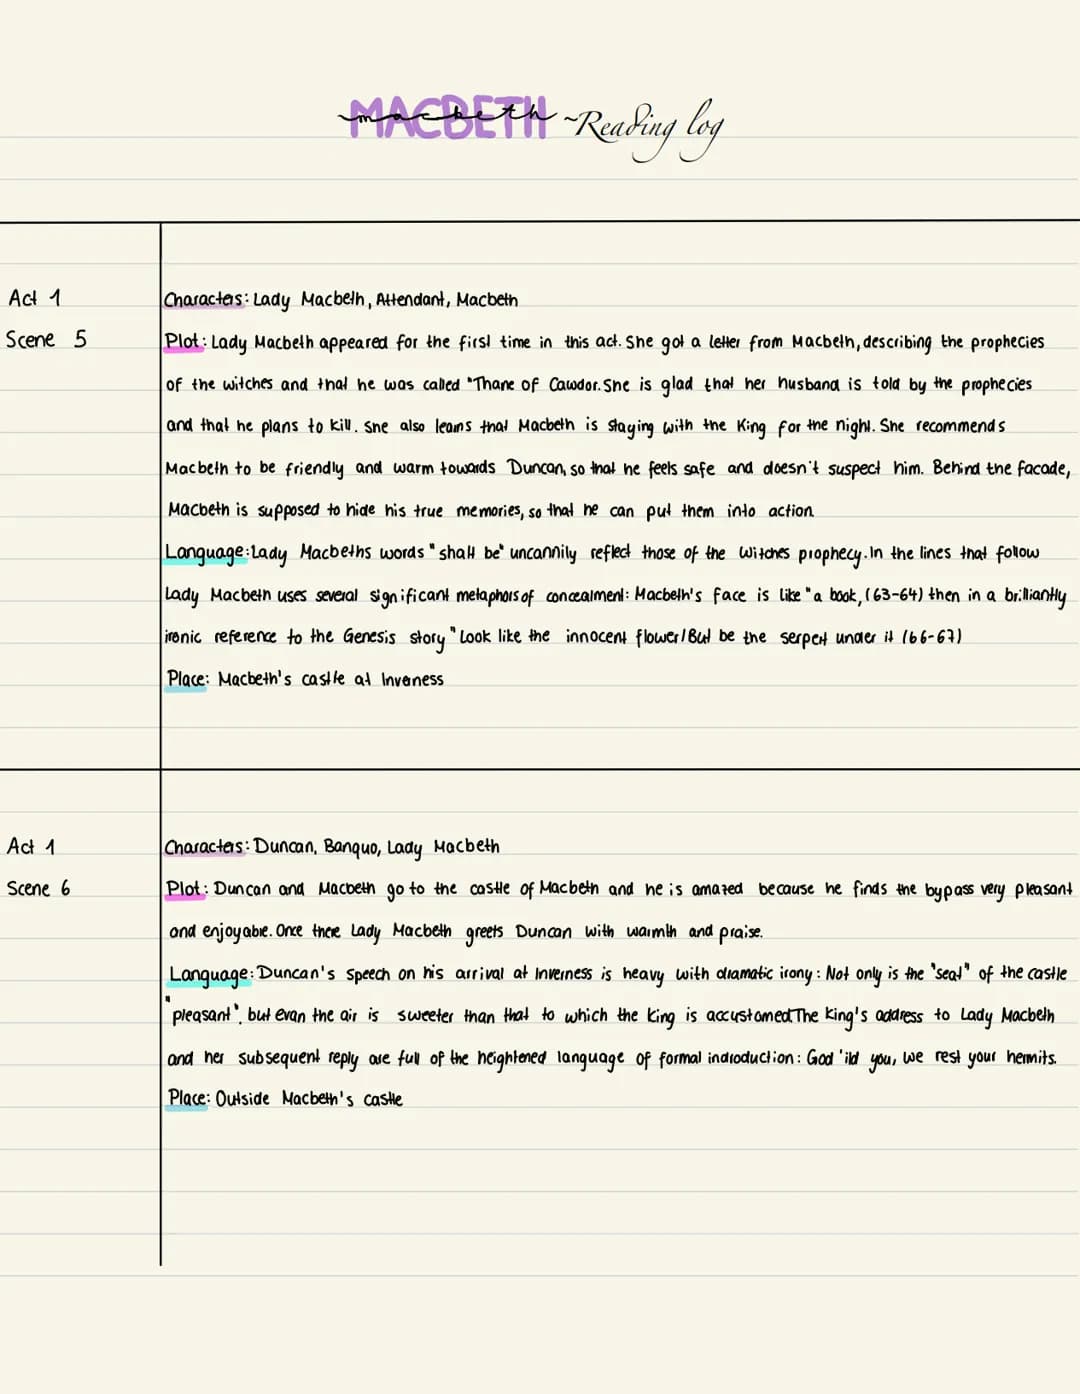 MACBETH macbeth ~Reading log
Act 1
Characters: Lady Macbeth, Attendant, Macbeth
Scene 5
Plot: Lady Macbeth appeared for the first time in this act. She got a letter from Macbeth, describing the prophecies
of the witches and that he was called "Thane of Cawdor. She is glad that her husband is told by the prophecies
and that he plans to kill. She also learns that Macbeth is staying with the King for the night. She recommends
Macbeth to be friendly and warm towards Duncan, so that he feels safe and doesn't suspect him. Behind the facade,
Macbeth is supposed to hide his true memories, so that he can put them into action
Language: Lady Macbeths words "shall be" uncannily reflect those of the Witches prophecy. In the lines that follow
Lady Macbeth uses several significant metaphors of concealment: Macbeth's face is like "a book, (63-64) then in a brilliantly
ironic reference to the Genesis story "Look like the innocent flower/But be the serpent under it (66-67)
Place: Macbeth's castle at Inverness
Act 1
Characters: Duncan, Banquo, Lady Macbeth
Scene 6
Plot: Duncan and Macbeth go to the castle of Macbeth and he is amazed because he finds the bypass very pleasant
and enjoyable. Once there Lady Macbeth greets Duncan with warmth and praise.
Language: Duncan's speech on his arrival at Inverness is heavy with dramatic irony: Not only is the "seat" of the castle
"pleasant", but evan the air is sweeter than that to which the king is accustomed.The king's address to Lady Macbeth
and her subsequent reply are full of the heightened language of formal indroduction: God 'ild you, we rest your hermits.
Place: Outside Macbeth's castle